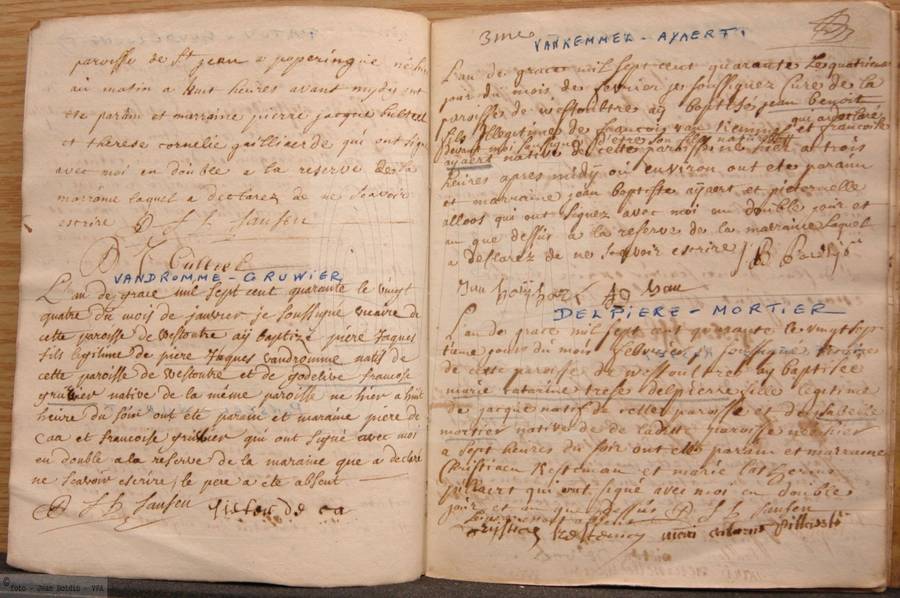 paroisse de St jean a poperingue né hier
au matin a huit heures avant midy ont
ete parain et marraine pierre jacque
et therese cornelie qui ont signé
avec moi en double a la reserve de la
marraine laquel a declarez de ne scavoir
escrire
VANDROMME - GRUWIER
L'an de grace mil sept cent quarante le vingt
quatre du mois de janvier je soussigné vicaire de
cette paroisse de westoutre aÿ baptizé piere Jaques
fils legitime de piere Jaques vandromme natif de
cette paroisse de westoutre et de godelive francoise
gruwier native de la même paroisse ne hier a huit
heure du soir ont eté parain et maraine piere de
caa et francoise gruwier qui ont signé avec moi
en double a la reserve de la maraine que a declaré
ne scavoir escrire, le pere a eté absent
3me
VANKEMMEL - AYAERT.
L'an de grace mil sept cent quarante le quatrieme
jour du mois de fevrier je soussignez Cure de la
paroisse de westoultre aÿ baptise jean benoit
fils illegitime de francois van kemmel et francoise
qui a declaré
devant moi soussigné d'etre son fils naturel
ayaert native de cette paroisse ne hier a trois
heures apres midy ou environ ont ete parain
et marraine jean baptiste ayaert et pieternelle
alloos qui ont signez avec moi en double jour et
an que dessus a la reserve de la marraine laquel
a declarez de ne scavoir escrire
DELPIERE - MORTIER
L'an de grace mil sept cent quarante le vingt sep
tieme jour du mois fevrier je soussigné
de cette paroisse de westoultre ay baptisee
marie catarine trese delpierre fille legitime
de jacque natif de cette paroisse et d'isabelle
mortier native de de ladite paroisse née hier
a sept heures du soir ont ete parain et marraine
Christiaen et marie
qui ont signé avec moi en double
jour et an que dessus
© foto - Jean Boldin - VFA